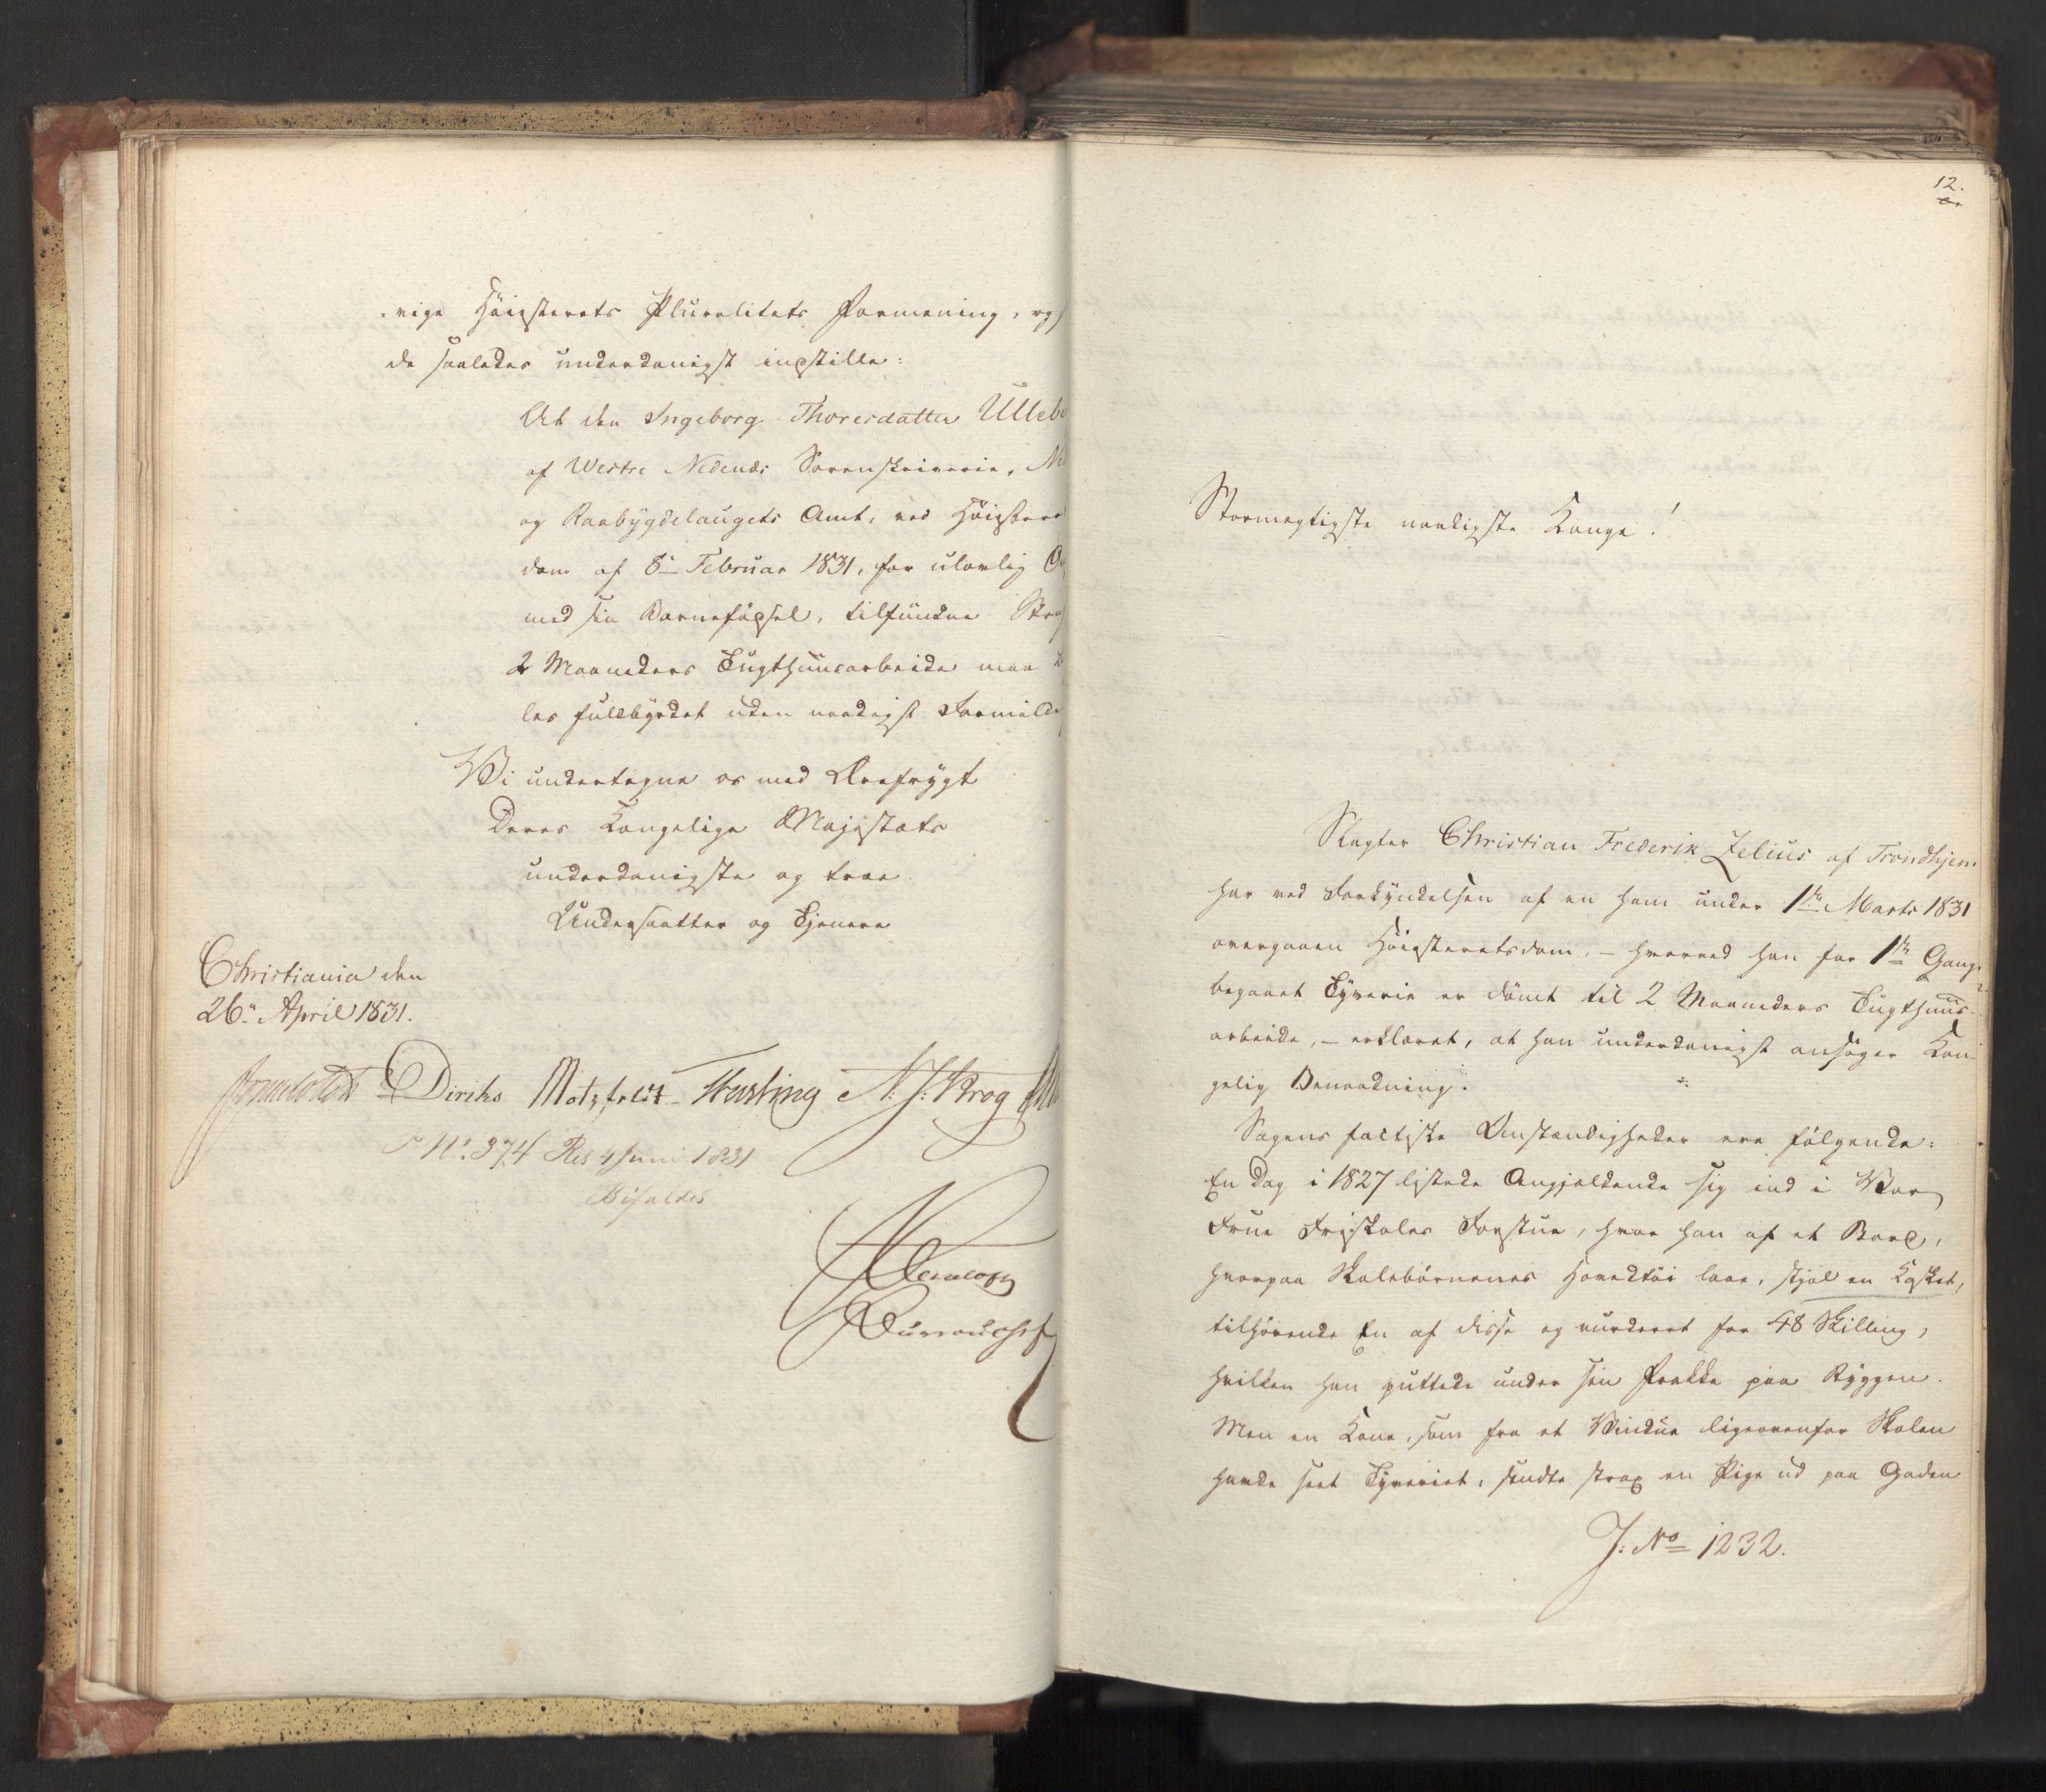 -rige Höiesterets Pluralitets Formening, og
de saaledes underdanigst indstille:
At den Ingeborg Thoresdatter Ulleb
af Westre Nedenæs Sorenskriverie, Ne
og Raabygdelaugets Amt, ved Höiester
dom af 8de Februar 1831, for ulovlig
med sin Barnefödsel, tilfundne Stra
2 Maaneders Tugthuusarbeide maa
les fuldbyrdet uden naadigst Formild
Vi undertegne os med Ærefrygt
Deres Kongelige Majestæts
underdanigste og troe
Undersaatter og Tjenere
Christiania den
26de April 1831.
Diriks Motzfeldt Fasting N. J: Krog
No. 374 Res 4 Juni 1831
Bifaldes
12.
Stormægtigste naadigste Konge!
Slagter Christian Frederik Zelius af Trondhjem
har ved Forkyndelsen af en ham under 1ste Marts 1831
overgaaen Höiesteretsdom, – hvorved han for 1ste Gang
begaaet Tyverie er dömt til 2 Maaneders Tugthuus-
arbeide, – erklæret, at han underdanigst ansöger Kon-
gelig Benaadning.
Sagens factiske Omstændigheder ere fölgende:
En Dag i 1827 listede Angjældende sig ind i Vor
Frue Friskoles Forstue, hvor han af et Bord,
hvorpaa Skolebörnenes Hovedtöi laae, stjal en Kasket,
tilhörende En af disse og vurderet for 48 Skilling,
hvilken han puttede under sin Frakke paa Ryggen.
Men en Kone, som fra et Vindue ligeoverfor Skolen
havde seet Tyveriet, sendte strax en Pige ud paa Gaden
J: No 1232.